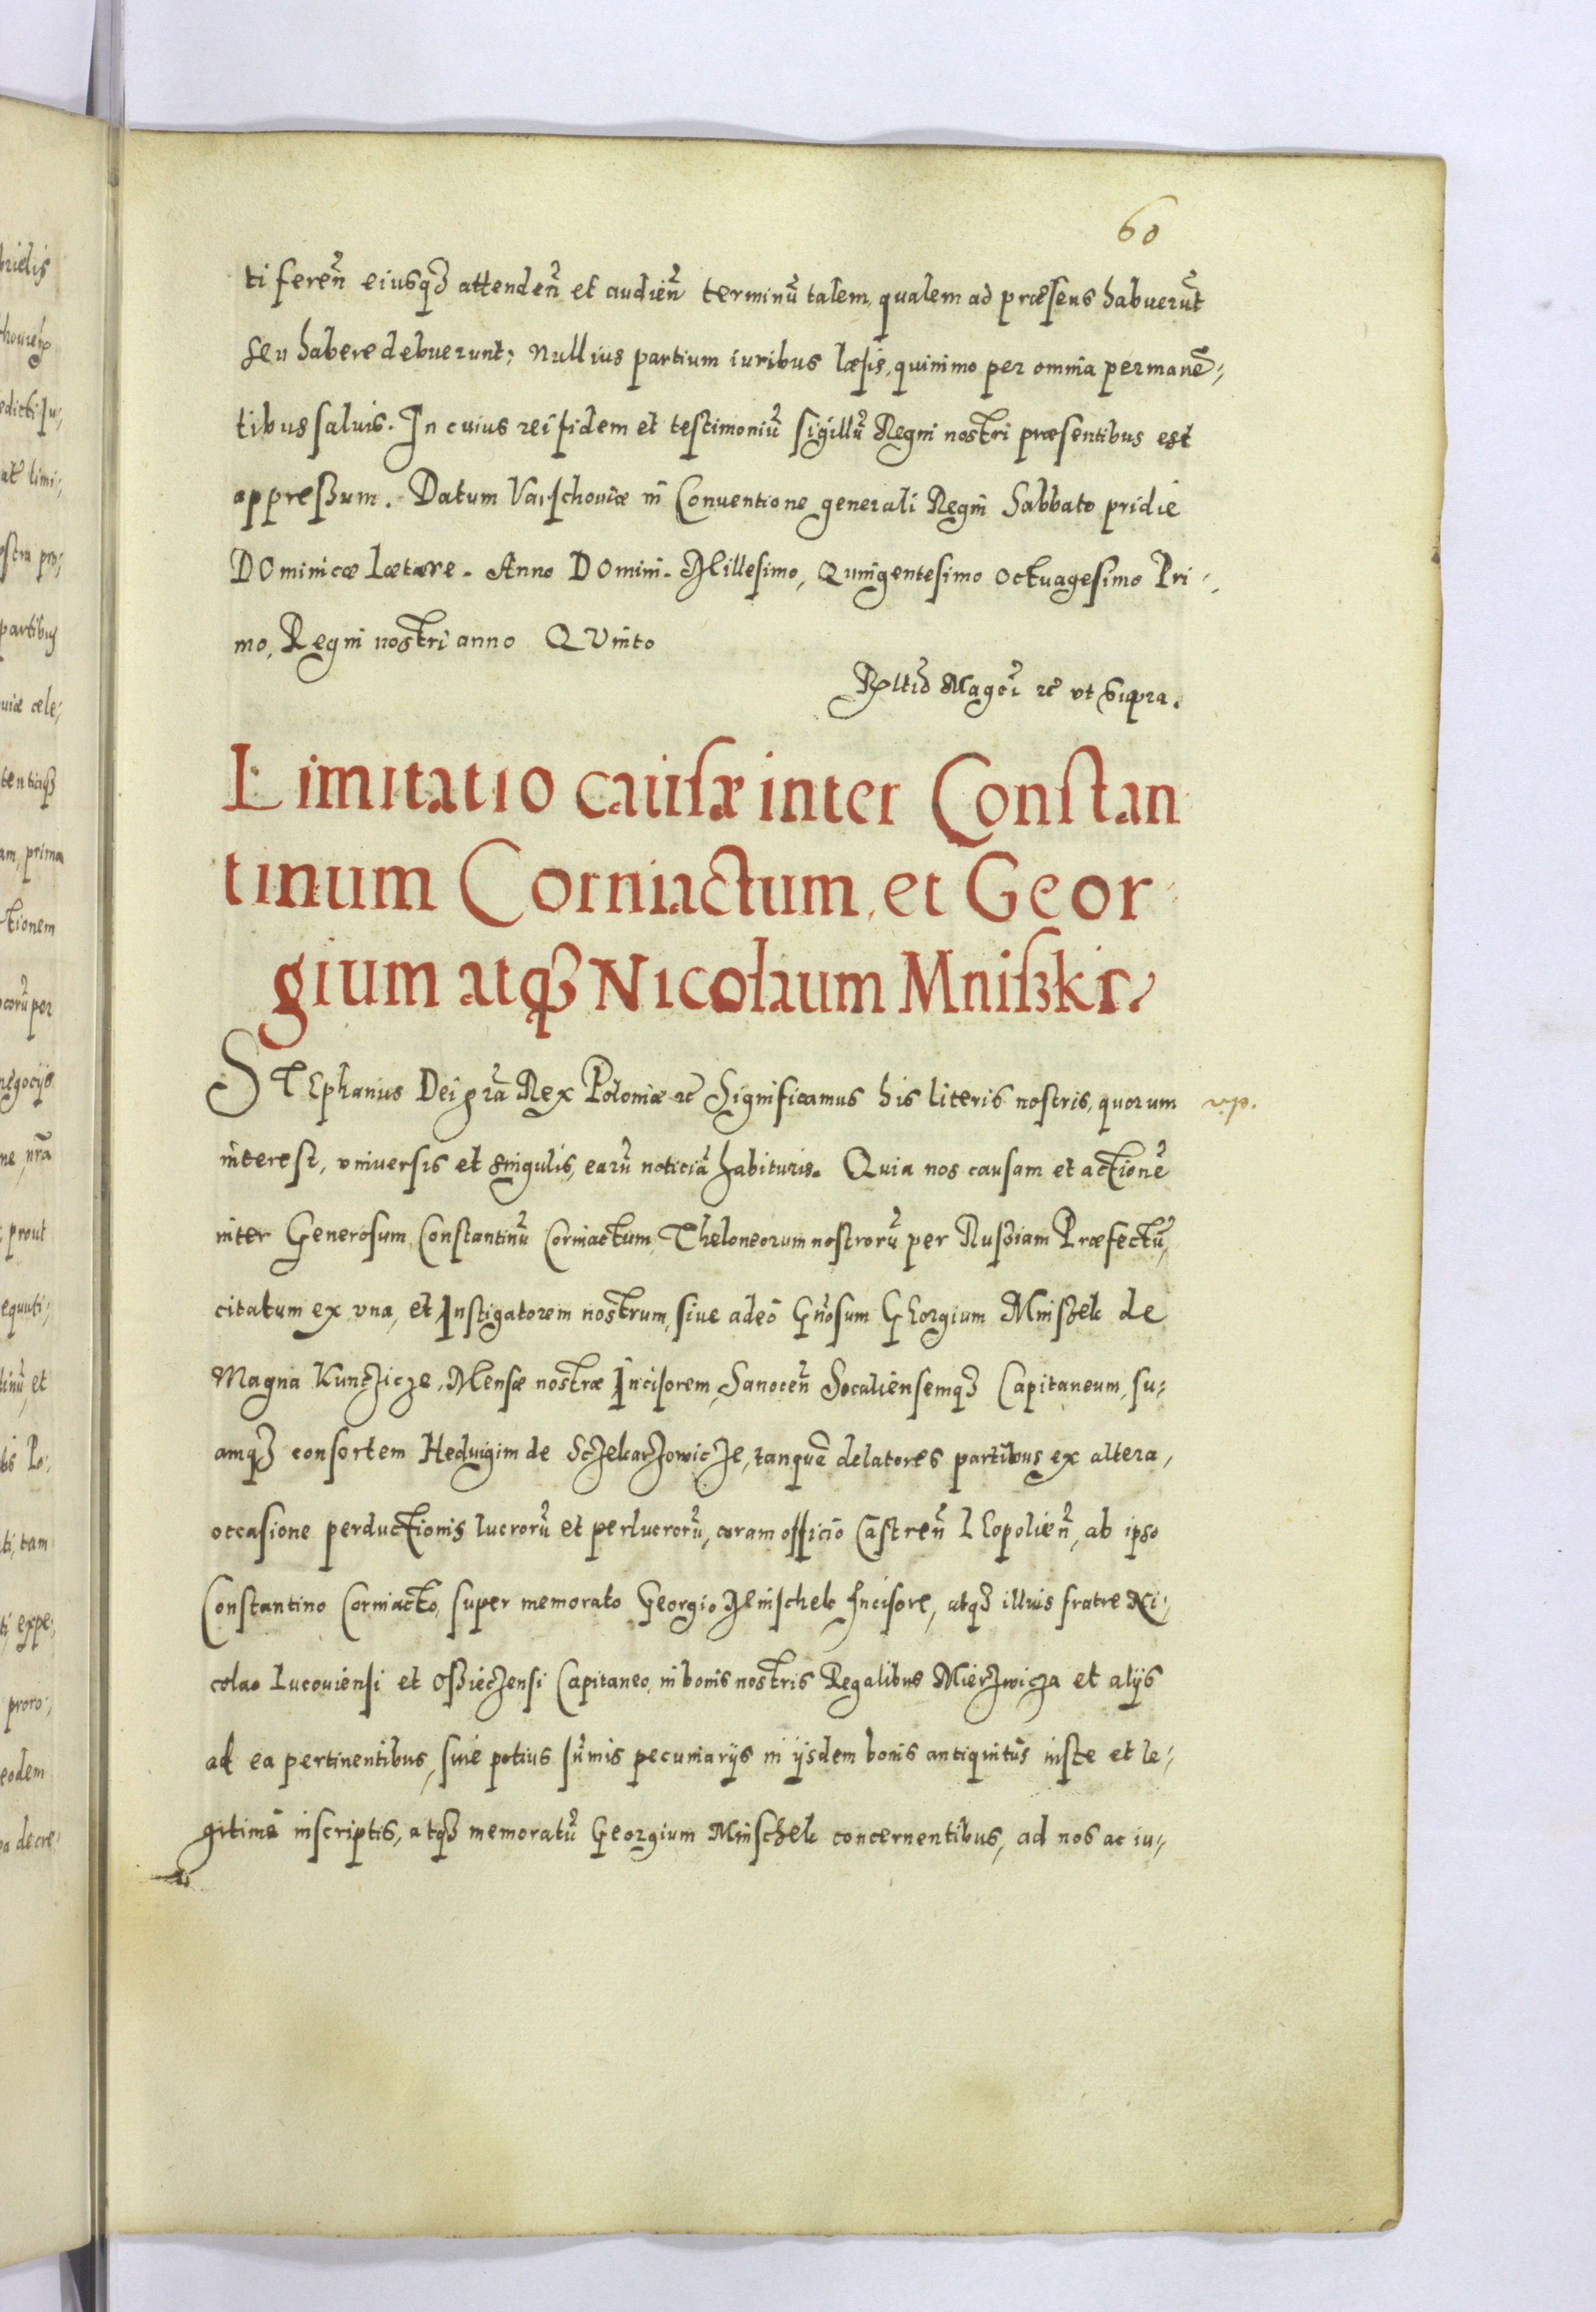 60
ti feren̄ eiusqꝫ attenden̄ et audien̄ terminū talem, qualem ad præsens habuerūt
seu habere debuerunt; Nullius partium iuribus læsis, quinimo per omnia permanē-
tibus saluis. In cuius rei fidem et testimoniū sigillū Regni nostri præsentibus est
appreßum. Datum Varschouiæ in Conuentione generali Regni Sabbato pridie
DOminicæ Lætare. Anno DOmini. Millesimo, Quingentesimo Octuagesimo Pri-
mo, Regni nostri anno QVinto
ut supra.
Limitatio causæ inter Constan
tinum Corniactum, et Geor
gium atqꝫ Nicolaum Mnißki.
STEphanus Dei grā Rex Poloniæ ꝛc Significamus his literis nostris, quorum
interest, vniuersis et singulis, earū noticiā habituris. Quia nos causam et actionē
inter Generosum Constantinū Corniactum, Theloneorum nostrorū per Rußiam Præfectū,
citatum ex vna, et Instigatorem nostrum, siue adeò Gn̄osum GEorgium Mniszek de
Magna Kunczicze, Mensæ nostræ Incisorem, Sanocen̄ Socaliensemqꝫ Capitaneum, su-
amqꝫ consortem Heduigim de Sczekarzowicze, tanquā delatores partibus ex altera,
occasione perductionis lucrorū et perlucrorū, coram officio Castren̄ LEopolien̄, ab ipso
Constantino Corniacto, super memorato Georgio Mnischek Incisore, atqꝫ illius fratre Ni-
colao Lucouiensi et Oßieczensi Capitaneo, in bonis nostris Regalibus Mierzwicza et alijs
ad ea pertinentibus, siue potius sum̄is pecuniarijs in ijsdem bonis antiquitùs iuste et le-
gitimè inscriptis, atqꝫ memoratū Georgium Mnischek concernentibus, ad nos ac iu-